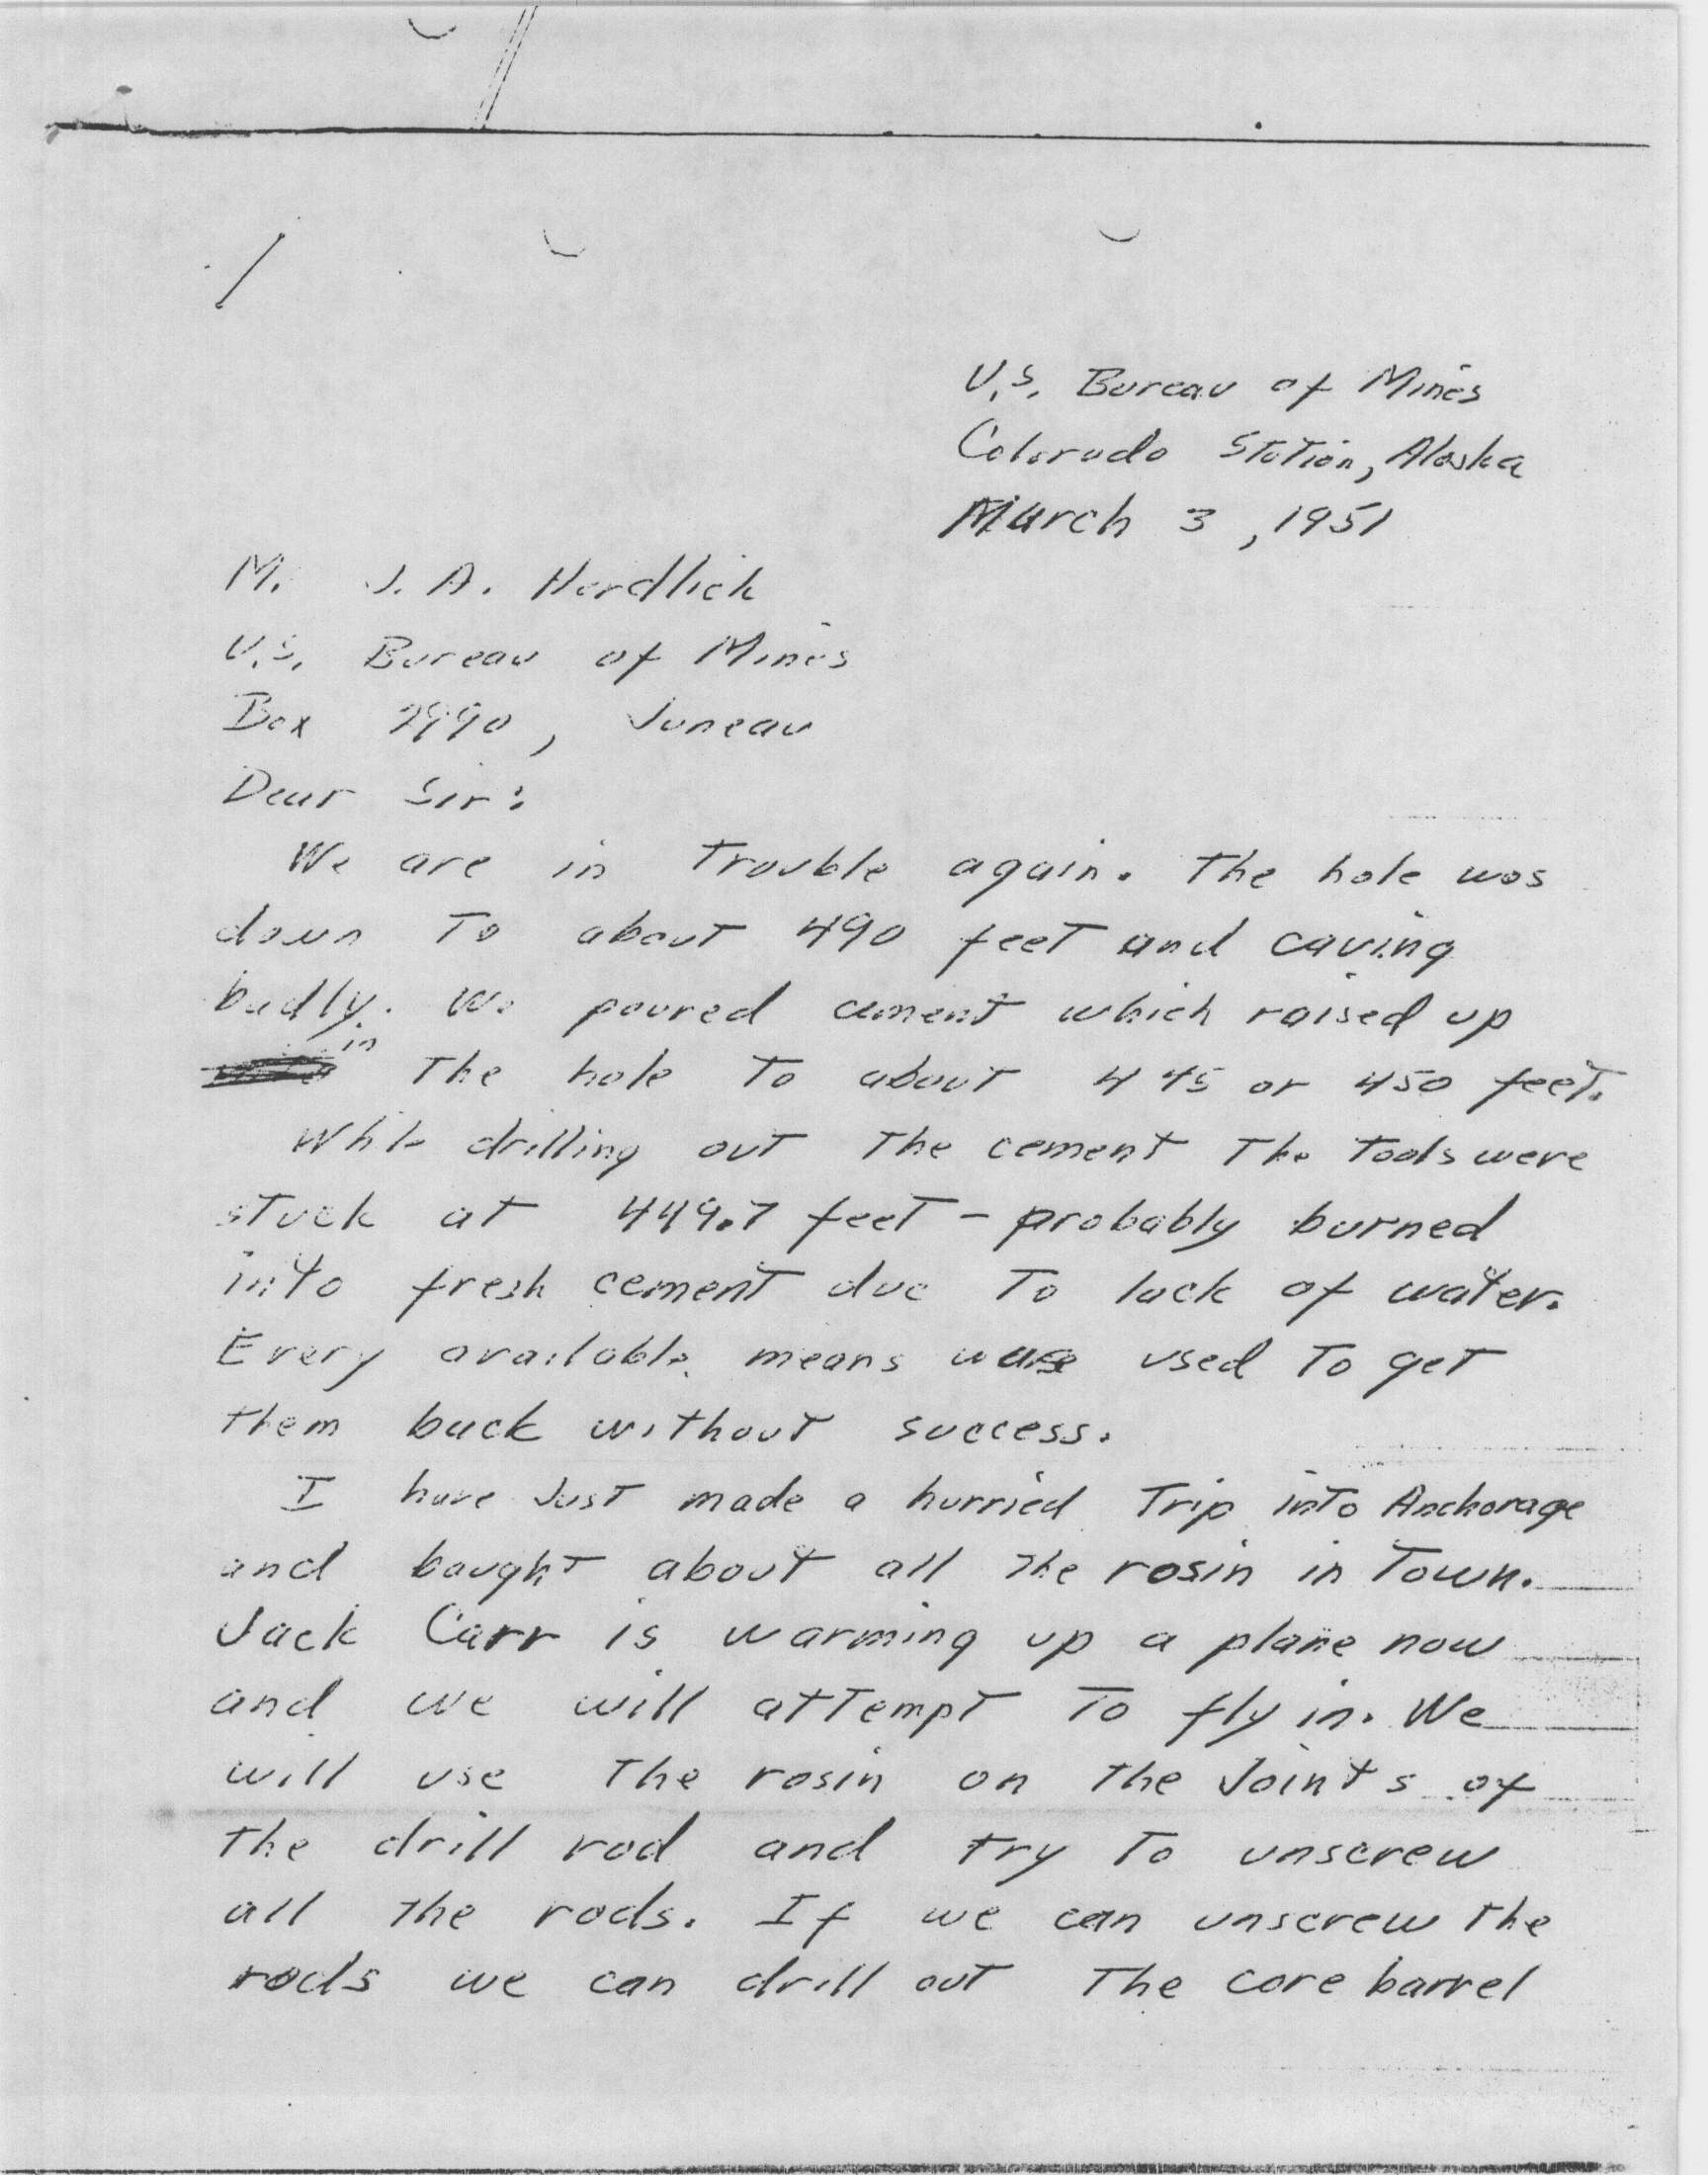 U.S. Bureau of Mines
Colorado Station, Alaska
March 3, 1951
M. J. A. Herdlick
U.S. Bureau of Mines
Box 2990, Juneau
Dear Sir:
We are in trouble again. The hole was
down to about 490 feet and caving
badly. We poured cement which raised up
in the hole to about 445 or 450 feet.
While drilling out the cement the tools were
stuck at 449.7 feet - probably burned
into fresh cement due to lack of water.
Every available means was used to get
them back without success.
I have just made a hurried trip into Anchorage
and bought about all the rosin in town.
Jack Carr is warming up a plane now
and we will attempt to fly in. We
will use the rosin on the joints of
the drill rod and try to unscrew
all the rods. If we can unscrew the
rods we can drill out the core barrel